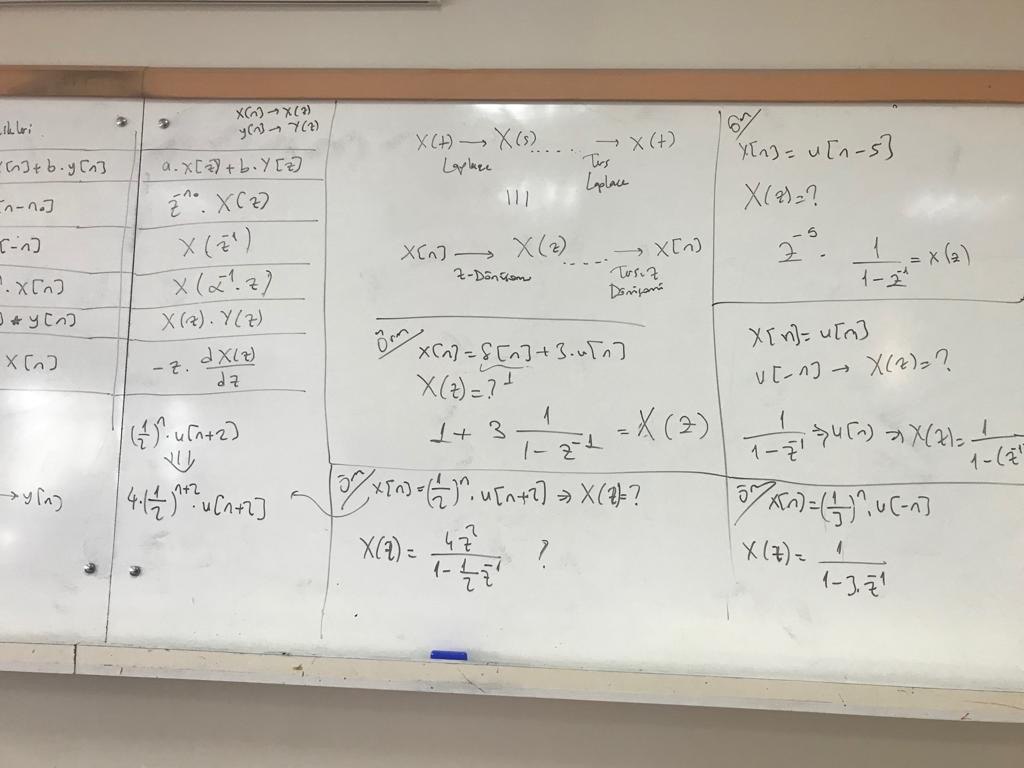 x[n] → X(z)
y[n] → Y(z)
x[n] + b.y[n]
a.X[z] + b.Y[z]
[n-n₀]
z^-n₀ . X(z)
[-n]
X(z^-1)
. x[n]
X(α^-1 . z)
] * y[n]
X(z) . Y(z)
x[n]
-z . dX(z)/dz
(1/2)^n . u[n+2]
⇓
→ y[n]
4.(1/2)^n+2 . u[n+2]
X(t) → X(s) ..... → X(t)
Laplace
Ters
Laplace
|||
X[n] → X(z) ..... → X[n]
Z-Dönüşüm
Ters-Z
Dönüşümü
Örn
X[n] = δ[n] + 3.u[n]
X(z) = ?
1
1 + 3 1/(1 - z^-1) = X(z)
Örn
X[n] = (1/2)^n . u[n+2] ⇒ X(z) = ?
X(z) = 4z^2/(1 - 1/2 z^-1) ?
Ör
X[n] = u[n-5]
X(z) = ?
z^-5 . 1/(1 - z^-1) = X(z)
X[n] = u[n]
u[-n] → X(z) = ?
1/(1 - z^-1) ⇒ u[n] ⇒ X(z) = 1/(1 - (z^-1
Ör
X[n] = (1/3)^n . u[-n]
X(z) = 1/(1 - 3.z^-1)